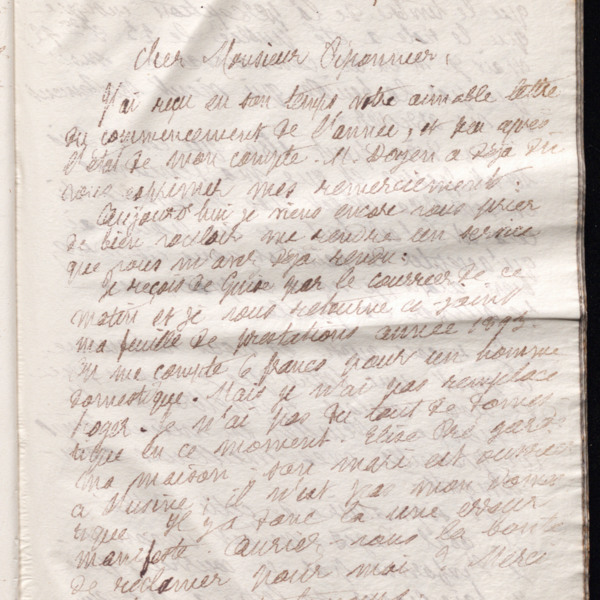 Cher Monsieur Sironnier,
J'ai reçu en son temps votre aimable lettre
du commencement de l'année, et peu après
l'état de mon compte. M. Doyen a déjà dû
vous exprimer mes remerciements.
Aujourd'hui je viens encore vous prier
de bien vouloir me rendre un service
que vous m'avez déjà rendu:
Je reçois de Guise par le courrier de ce
matin et je vous retourne ci-joint
ma feuille de prestations année 1893.
On me compte 6 francs pour un homme
domestique. Mais je n'ai pas remplacé
Roger. Je n'ai pas du tout de domes
tique en ce moment. Elise Pré garde
ma maison, son mari est ouvrier
à l'usine; il n'est pas mon domes
tique. Il y a donc là une erreur
manifeste. Auriez-vous la bonté
de réclamer pour moi? Merci